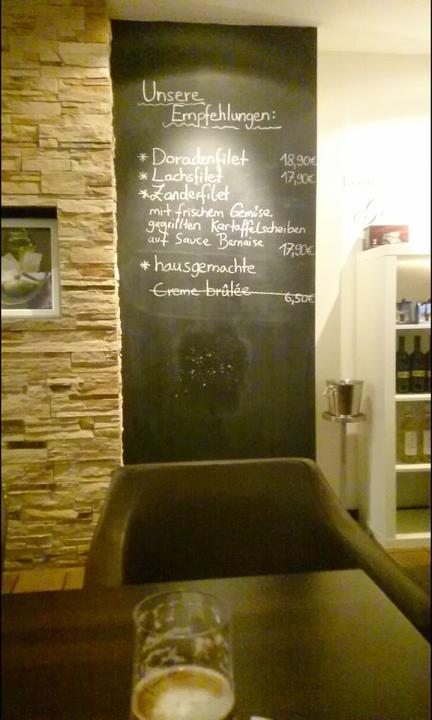 Unsere
Empfehlungen:
* Doradenfilet 18,90€
* Lachsfilet 17,90€
* Zanderfilet
mit frischem Gemüse,
gegrillten Kartoffelscheiben
auf Sauce Bernaise 17,90€
* hausgemachte
Creme brûlée 6,50€